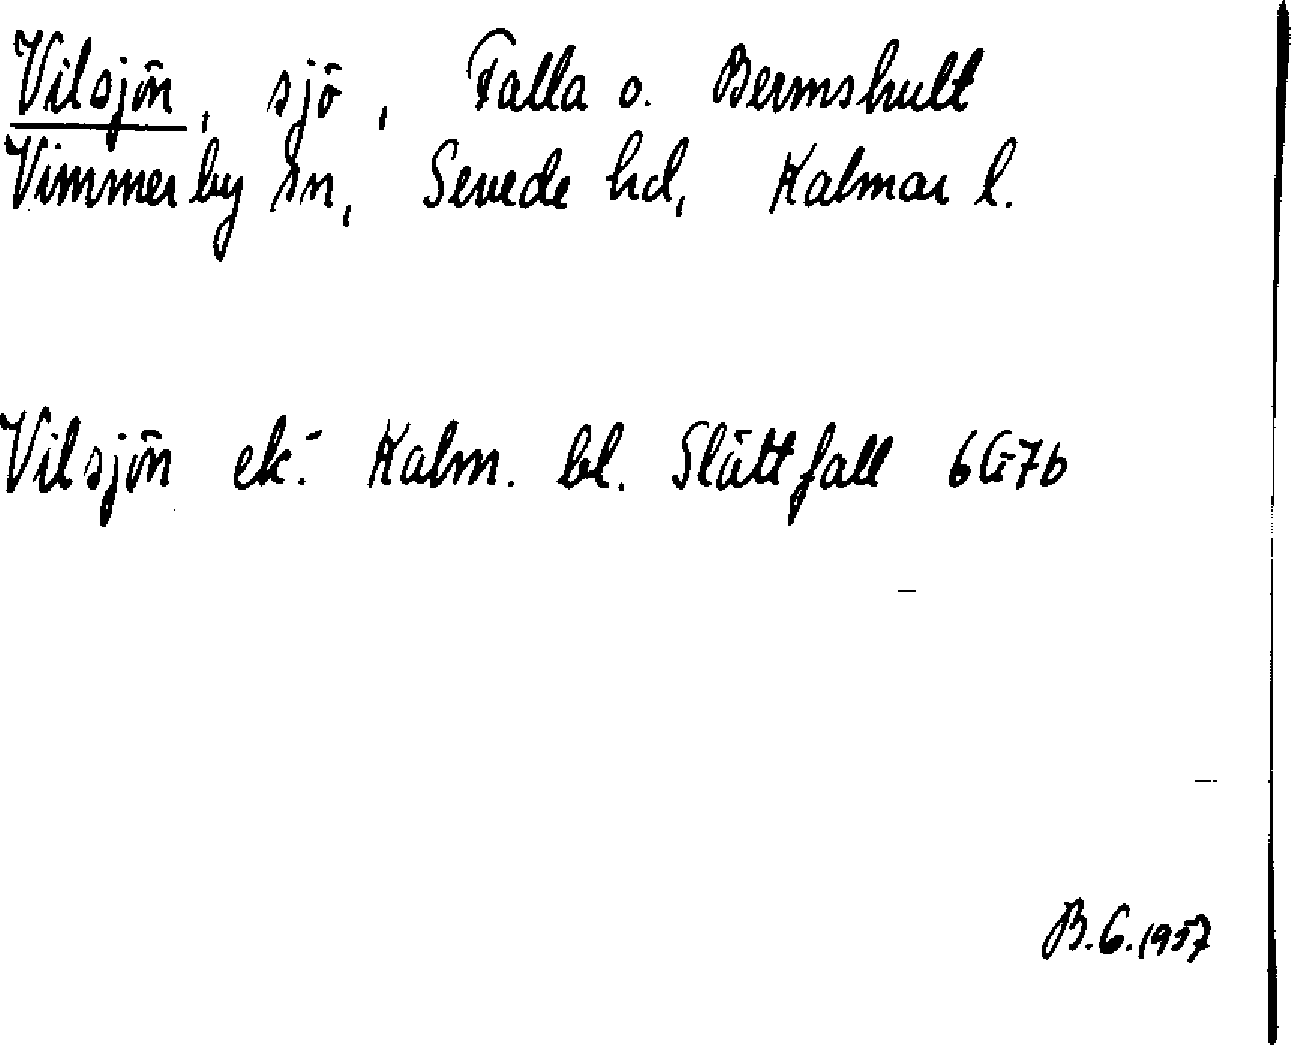 Vilsjön, sjö, Falla o. Bermshult
Vimmerby sn, Sevede hd, Kalmar l.
Vilsjön ek. Kalm. bl. Slättfall 6G7b
B.G.1957